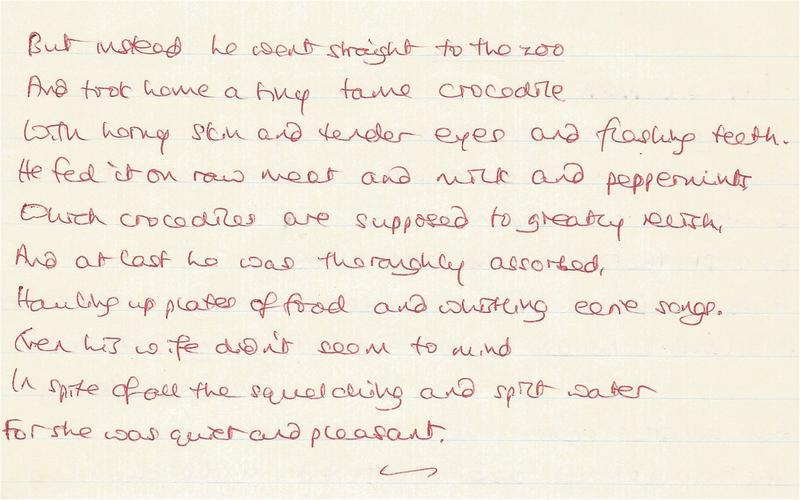 But instead he went straight to the zoo
And took home a tiny tame crocodile
With horny skin and tender eyes and flashing teeth.
He fed it on raw meat and milk and peppermints
Which crocodiles are supposed to greatly relish,
And at last he was thoroughly absorbed,
Hauling up plates of food and whistling eerie songs.
Even his wife didn't seem to mind
In spite of all the squelching and spilt water
For she was quiet and pleasant.